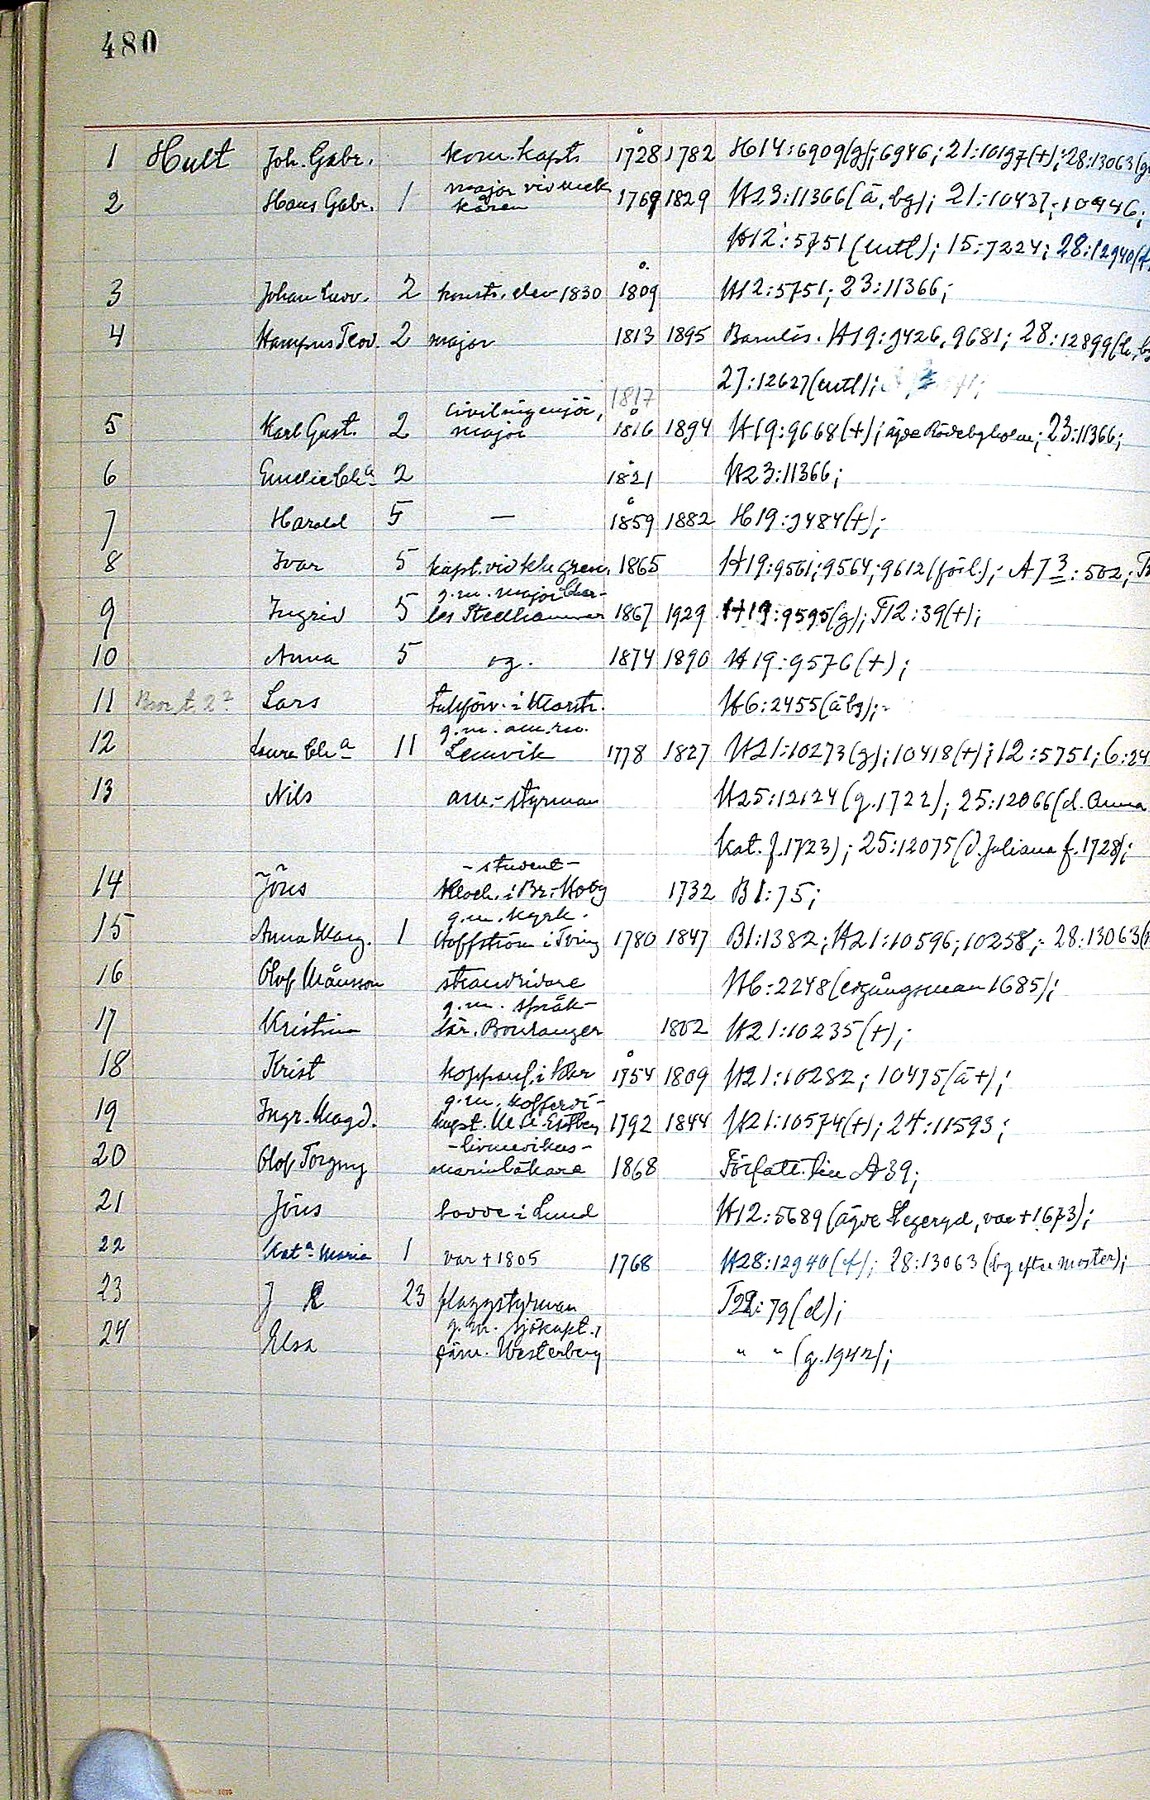 480
1 Hult Joh. Gabr. kom. kapt. 1728 1782 H14:6909(g); 6946; 21:10197(+); 28:13063(g
2 Hans Gabr. 1 major vid mek. kåren 1769 1829 H23:11366(ä, bg); 21:10437; 10446;
H12:5751(entl); 15:7224; 28:12940(
3 Johan 2 konstr. elev 1830 1809 H12:5751; 23:11366;
4 Hampus Teod. 2 major 1813 1895 Barnlös. H19:9426, 9681; 28:12899(
27:12627(entl);
1817
5 Karl Gust. 2 civilingenjör, major 1816 1894 H19:9668(+); ägde Rödebyholm; 23:11366;
6 Emelie Chª 2 1821 H23:11366;
7 Harald 5 — 1859 1882 H19:9484(+);
8 Ivar 5 kapt. vid Kha gren. 1865 H19:9501; 9564; 9612(förl.); A73:502;
9 Ingrid 5 g.m. major Charles Stedhammar 1867 1929 H19:9595(g); T12:39(+);
10 Anna 5 og. 1874 1890 H19:9576(+);
11 Bror t. 2? Lars tullförv. i Marstr. H6:2455(äbg);
12 Laura Chª 11 g.m. am.rev. Lemvik 1778 1827 H21:10273(g); 10418(+); 12:5751; 6:24
13 Nils am.-styrman H25:12124(g.1722); 25:12066(d. Anna
Kat. f.1723); 25:12075(d. Juliana f.1728);
14 Jöns -student- klock. i Br.-Hoby 1732 B1:75;
15 Anna Marg. 1 g.m. kyrkh. Hoffström i Tving 1780 1847 B1:1382; H21:10596; 10258; 28:13063(
16 Olof Månsson strandridare H6:2248(edgångsman 1685);
17 Kristina g.m. språklär. Boulanger 1802 H21:10235(+);
18 Krist koppsl. i Kkr 1754 1809 H21:10282; 10475(ä+);
19 Ingr. Magd. g.m. kofferdikapt. 1792 1844 H21:10574(+); 24:11593;
20 Olof Torgny -livmedikus- marinläkare 1868 Författ. A39;
21 Jöns bodde i Lund H12:5689(ägde Hegeryd, var +1673);
22 Katª Maria 1 var +1805 1768 H28:12940(f); 28:13063(bg efter moster);
23 J R 23 flaggstyrman T22:79(d);
24 Elsa g.m. sjökapt., fänr. Westerberg " " (g.1942);